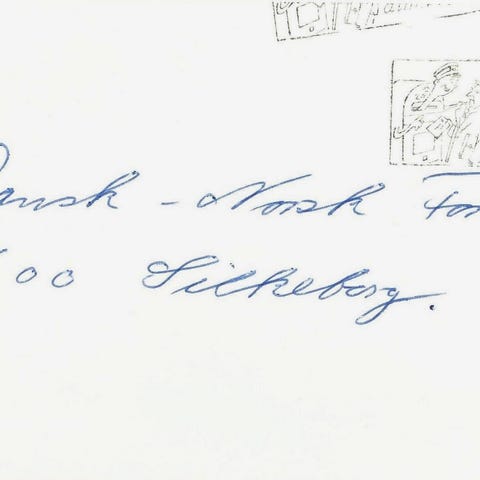 Dansk - Norsk For
600 Silkeborg.